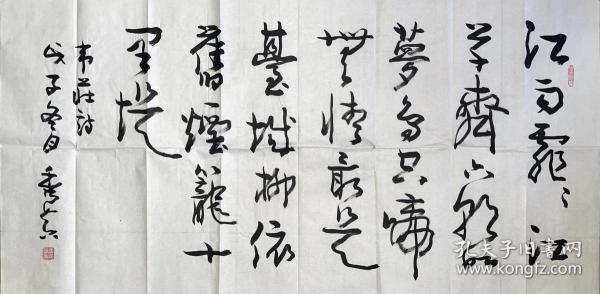 江雨霏〻江
草齊六朝如
夢鳥空啼
無情最是
臺城柳依
舊煙籠十
里堤
韋莊詩
戊子冬日
孔夫子旧书网
www.kongfz.com